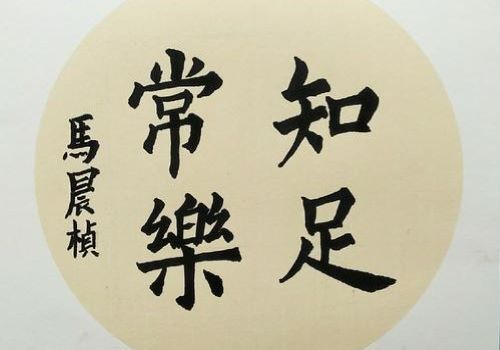 知足
常樂
馬晨楨